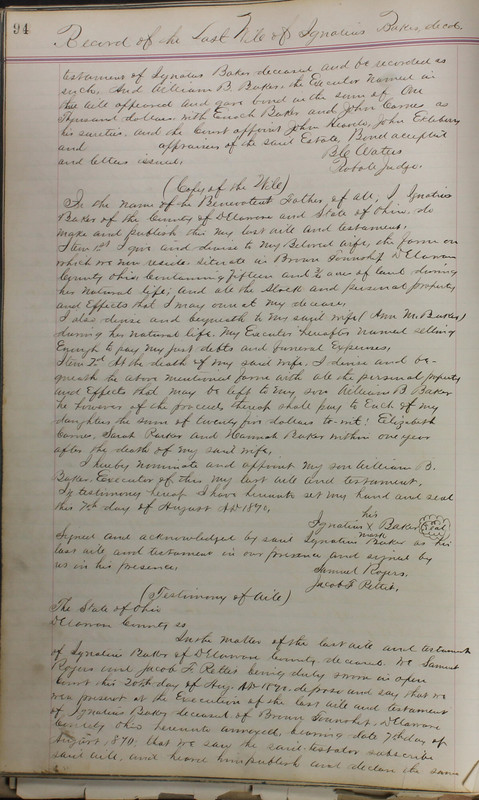 94
Record of the Last Will of Ignatius Baker, decd.
testament of Ignatius Baker deceased and be recorded as
such. And William B. Baker, the Executor named in
the will appeared and gave bond in the sum of One
thousand dollars with Enoch Baker and John Carnes as
his sureties. and the Court appoint John Hearls, John
and appraisers of the said Estate. Bond accepted
and letters issued.
B. C. Waters
Probate Judge.
(Copy of the Will)
In the name of the Benevolent Father, of all, I Ignatius
Baker of the County of Delaware and State of Ohio, do
make and publish this my last will and testament.
Item 1st I give and devise to my Beloved wife, the farm on
which we now reside situate in Brown Township Delaware
County Ohio, Containing Fifteen and ½ acres of land during
her natural life; and all the Stock and personal property
and Effects that I may own at my decease,
I also devise and bequeath to my said wife (Ann M. Baker)
during her natural life. My Executor hereafter named selling
Enough to pay my just debts and funeral Expenses,
Item 2nd At the death of my said wife, I devise and be-
queath the above mentioned farm with all the personal property
and Effects that may be left to my son William B Baker
he however of the proceeds thereof shall pay to Each of my
daughters the sum of twenty five dollars to-wit: Elizabeth
Carnes, Sarah Parker and Hannah Baker within one year
after the death of my said wife,
I hereby nominate and appoint my son William B.
Baker. Executor of this my last will and testament,
In testimony hereof I have hereunto set my hand and seal
this 7th day of August AD 1890,
his
Ignatius X Baker Seal
mark
Signed and acknowledged by said Ignatius Baker as his
last will and testament in our presence and signed by
us in his presence
Samuel Rogers.
Jacob F. Rettes.
(Testimony of Will)
The State of Ohio
Delaware County ss
In the matter of the last will and testament
of Ignatius Baker of Delaware County, deceased. We Samuel
Rogers and Jacob F. Rettes being duly sworn in open
Court this 20th day of Aug. AD 1890. depose and say that we
were present at the Execution of the last will and testament
of Ignatius Baker deceased of Brown Township, Delaware
County Ohio hereunto annexed, bearing date 7th day of
August, 1890; that we saw the said testator subscribe
said will, and heard him publish and declare the same